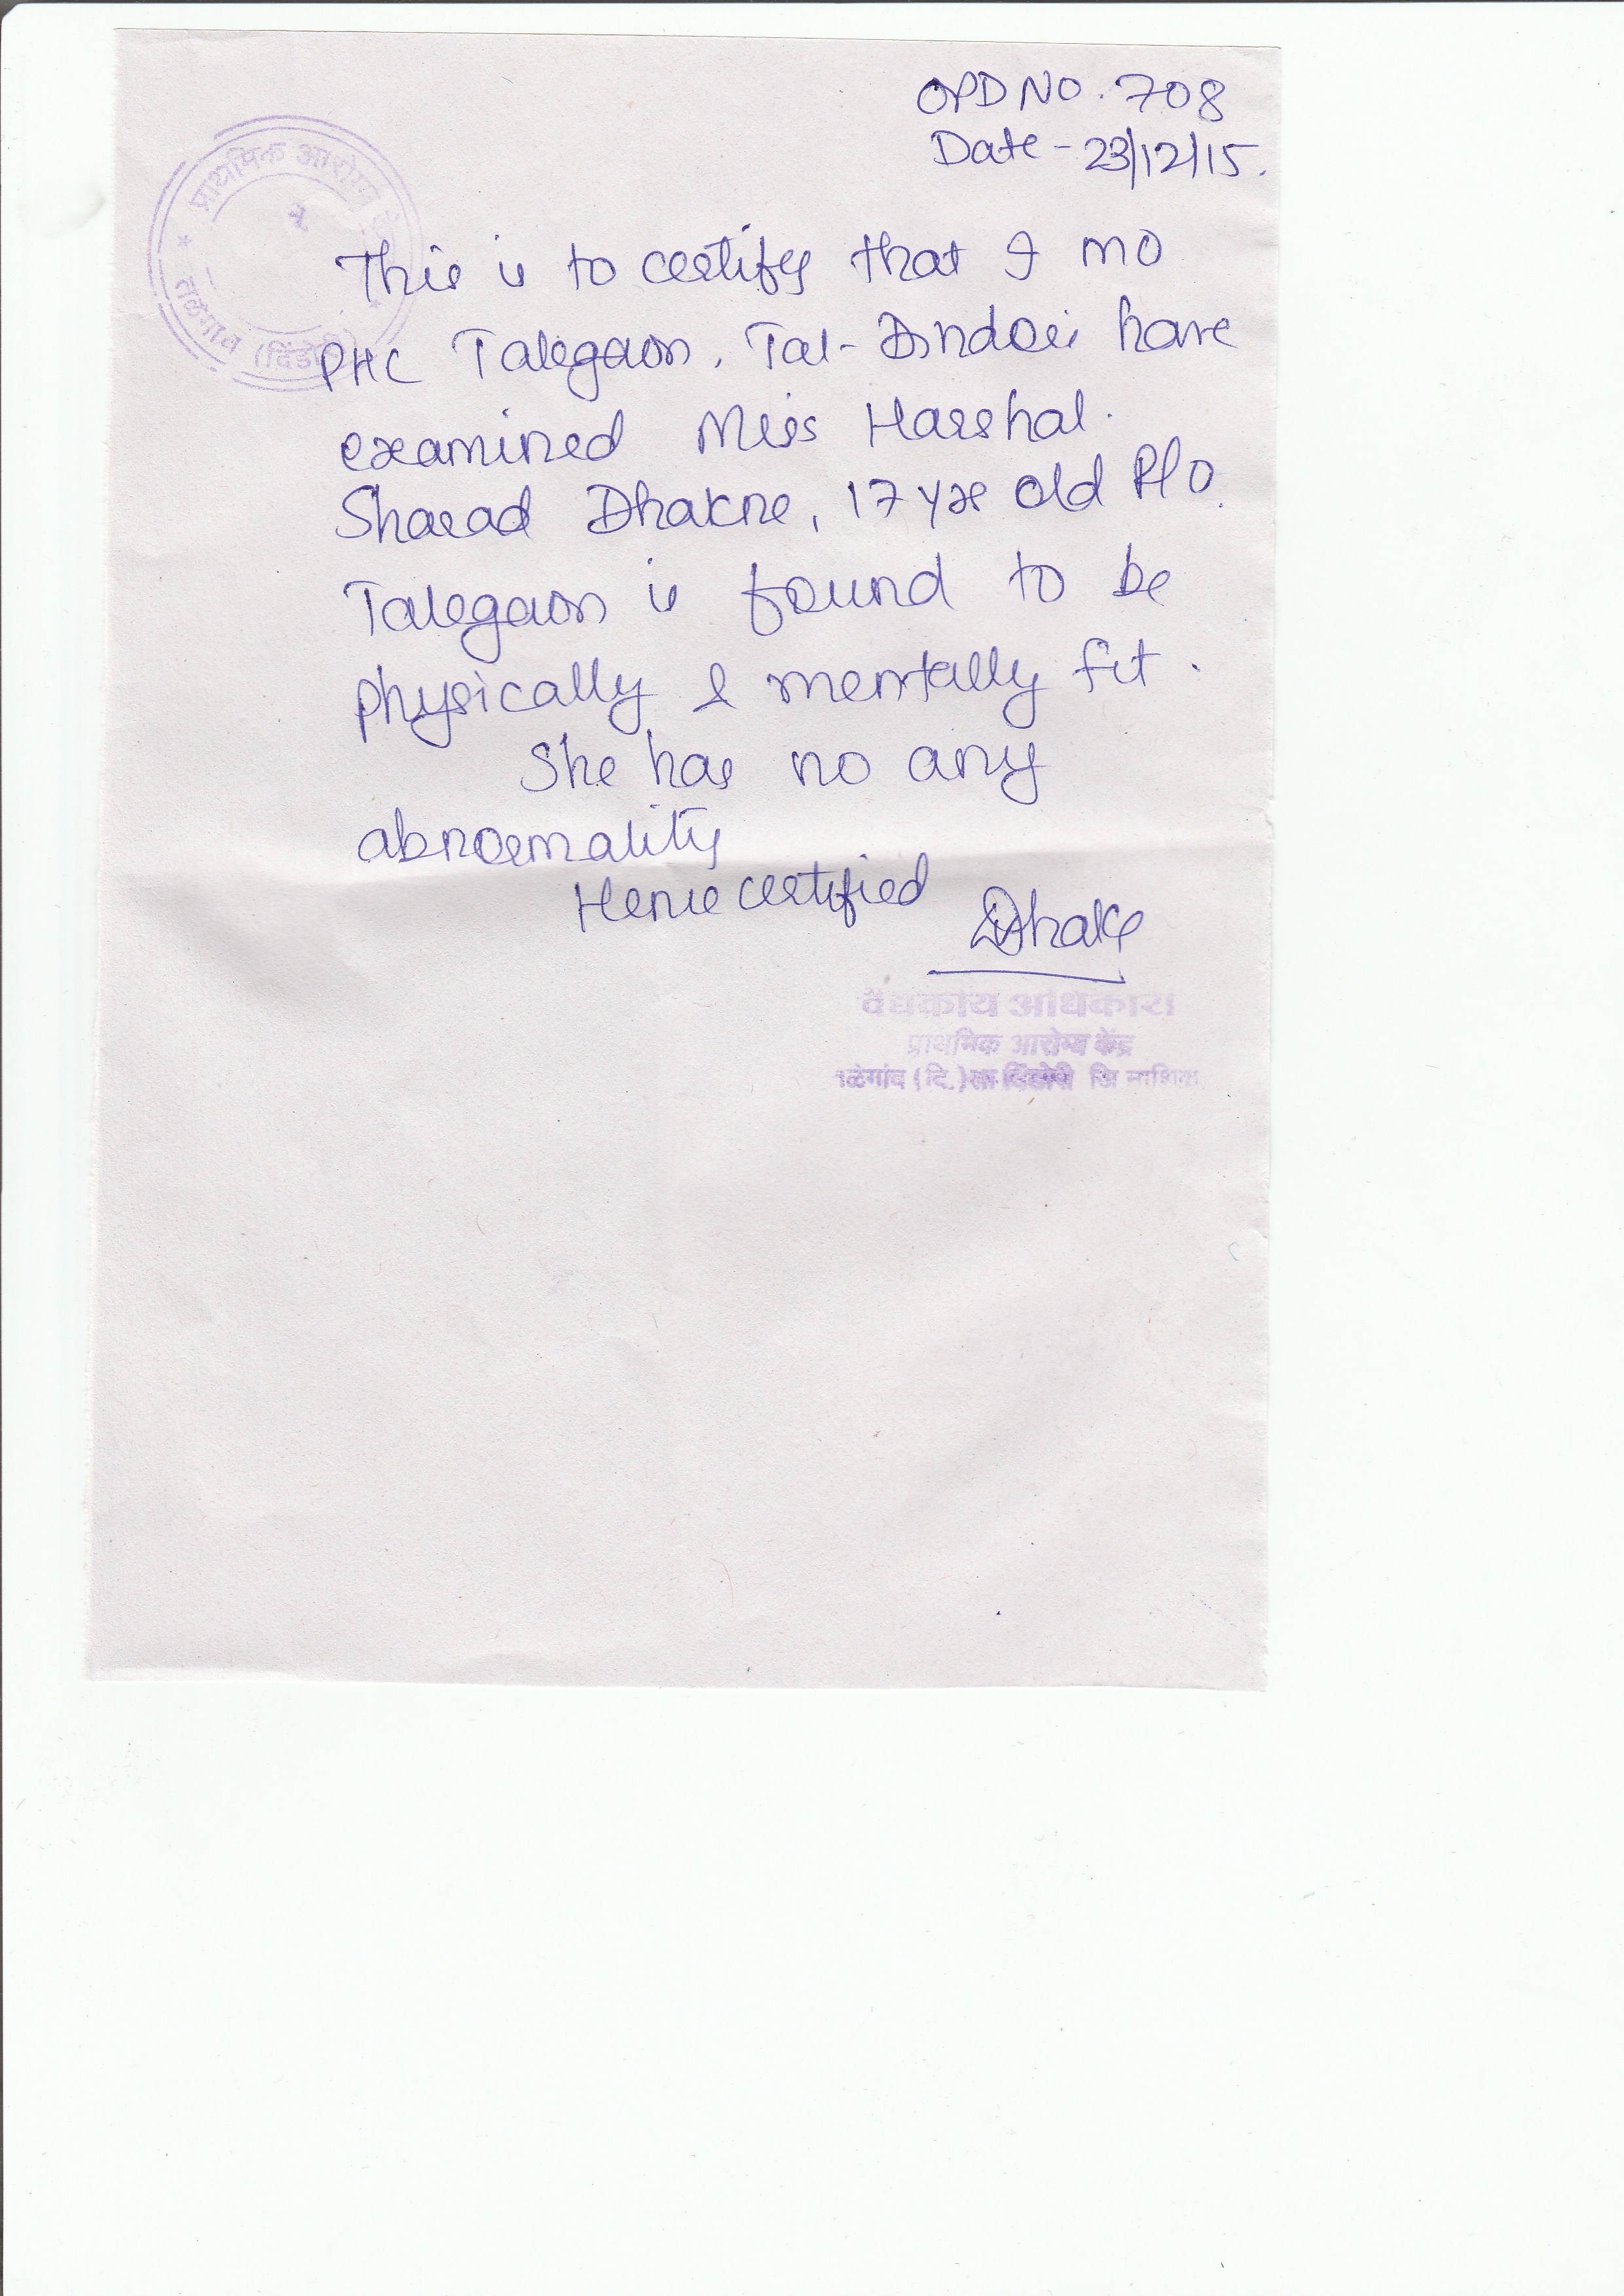 OPD NO. 708
Date - 23/12/15.
प्राथमिक आरोग्य
तळेगाव (दिंडोरी)
This is to certify that I MO
PHC Talegaon, Tal- Dindori have
examined Miss Harshal.
Sharad Dhakne, 17 yrs old R/O.
Talegaon is found to be
physically & mentally fit.
She has no any
abnormality
Hence certified
वैद्यकीय अधिकारी
प्राथमिक आरोग्य केंद्र
तळेगांव (दि.) ता. दिंडोरी जि नाशिक